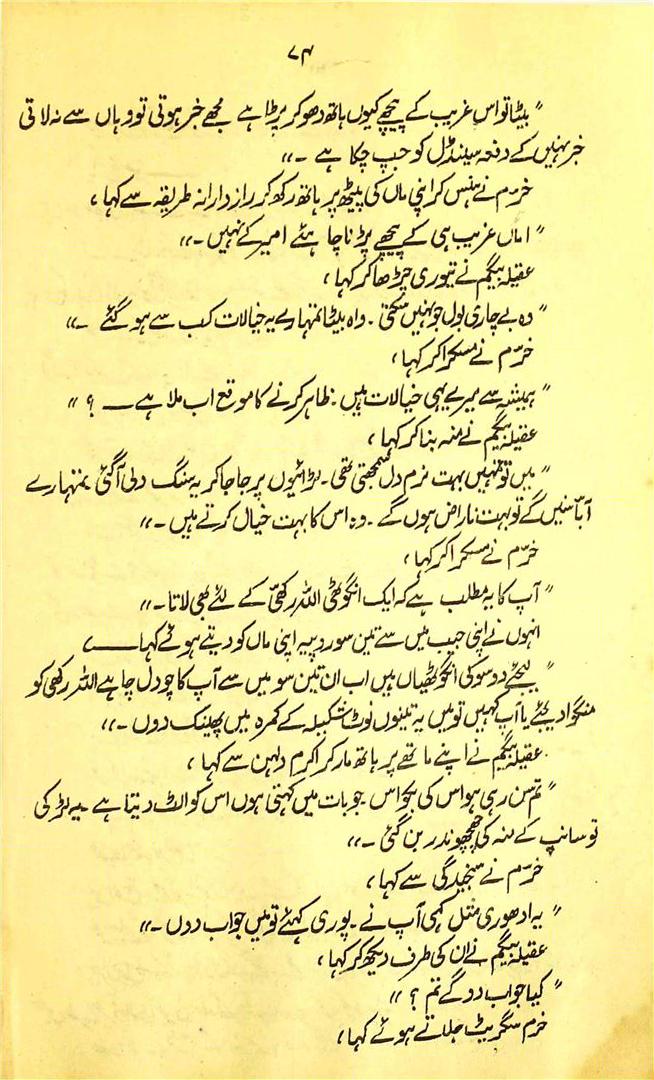 ۷۴
"بیٹا تو اس غریب کے پیچھے کیوں ہاتھ دھو کر پڑا ہے مجھے خبر ہوتی تو وہاں سے نہ لاتی
خبر نہیں کے دفعہ سینڈل کو جب چکا ہے ۔"
خرّم نے ہنس کر اپنی ماں کی پیٹھ پر ہاتھ رکھ کر رازدارانہ طریقہ سے کہا،
"اماں غریب ہی کے پیچھے پڑنا چاہئے امیر کے نہیں ۔"
عقیلہ بیگم نے تیوری چڑھا کر کہا،
"وہ بے چاری بول جو نہیں سکتی ۔ واہ بیٹا تمہارے یہ خیالات کب سے ہو گئے ۔"
خرّم نے مسکرا کر کہا،
"ہمیشہ سے میرے یہی خیالات ہیں ۔ ظاہر کرنے کا موقع اب ملا ہے ــــ ؟"
عقیلہ بیگم نے منہ بنا کر کہا،
"میں تو تمہیں بہت نرم دل سمجھتی تھی ۔ لڑائیوں پر جا جا کر یہ سنگ دلی آ گئی ۔ تمہارے
ابّا سنیں گے تو بہت ناراض ہوں گے ۔ وہ اس کا بہت خیال کرتے ہیں ۔"
خرّم نے مسکرا کر کہا،
"آپ کا یہ مطلب ہے کہ ایک انگوٹھی اللہ رکھی کے لئے بھی لاتا ۔"
انہوں نے اپنی جیب میں سے تین سو روپیہ اپنی ماں کو دیتے ہوئے کہا ــــ،
"لیجئے دو سو کی انگوٹھیاں ہیں اب ان تین سو میں سے آپ کا جو دل چاہے اللہ رکھی کو
منگوا دیجئے یا آپ کہیں تو میں یہ تینوں نوٹ شکیلہ کے کمرہ میں پھینک دوں ۔"
عقیلہ بیگم نے اپنے ماتھے پر ہاتھ مار کر اکرم دلہن سے کہا،
"تم سن رہی ہو اس کی بکواس ۔ جو بات میں کہتی ہوں اس کو الٹ دیتا ہے ۔ یہ لڑکی
تو سانپ کے منہ کی چھچھوندر بن گئی ۔"
خرّم نے سنجیدگی سے کہا،
"یہ ادھوری مثل کہی آپ نے ۔ پوری کہئے تو میں جواب دوں ۔"
عقیلہ بیگم نے ان کی طرف دیکھ کر کہا،
"کیا جواب دو گے تم ؟"
خرم سگریٹ جلاتے ہوئے کہا،